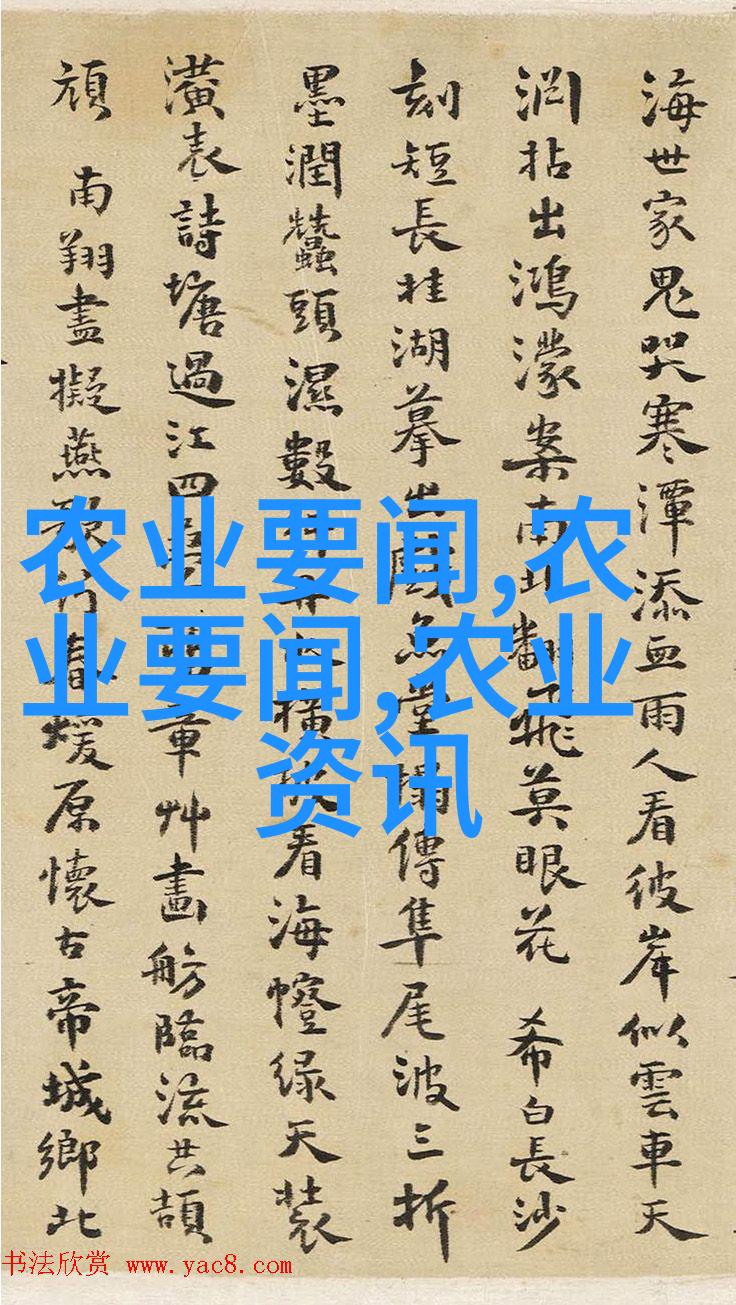 海世家鬼哭寒潭添血雨人看彼岸似雲車天
渊拈出鴻濛案南北翻飛莫眼花 希白長沙
刻短長桂湖摹出戲魚堂搨傳隼尾波三折
墨潤蠶頭濕數 橫 看海幢绿天裝
潢表詩塘過江四 章艸畫舫臨流共頡
頏 南翔盡擬燕歌行春煖原懷古帝城鄉北
农业要闻,农
业要闻,农业
资讯
书法欣赏 www.yac8.com